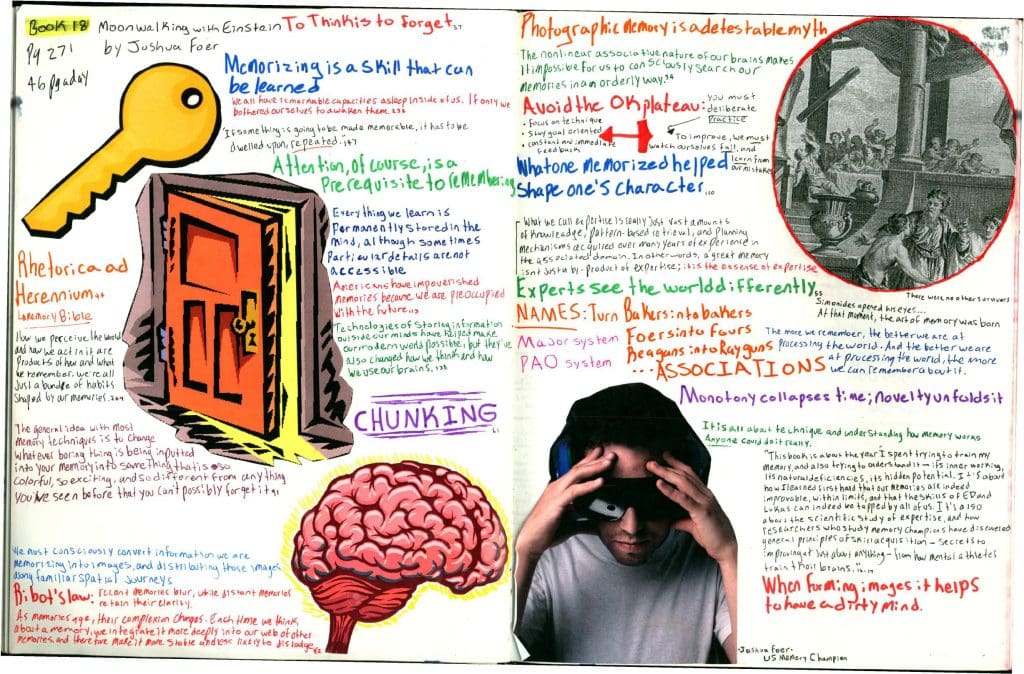 BOOK 18
Moonwalking with Einstein
To Think is to Forget
Pg 271
by Joshua Foer
46 pg a day
Memorizing is a skill that can
be learned
We all have remarkable capacities asleep inside of us. If only we
bothered ourselves to awaken them.
"If something is going to be made memorable, it has to be
dwelled upon, repeated."
Attention, of course, is a
Prerequisite to remembering
Everything we learn is
permanently stored in the
mind, although sometimes
Particular details are not
accessible
Americans have impoverished
memories because we are preoccupied
with the future
Technologies of storing information
outside our minds have helped make
our modern world possible, but they've
also changed how we think and how
we use our brains.
CHUNKING
Rhetorica ad
Herennium
Memory Bible
How we perceive the world
and how we act in it are
products of how and what
we remember. we're all
just a bundle of habits
shaped by our memories.
The general idea with most
memory techniques is to change
whatever boring thing is being inputted
into your memory into something that is so
colorful, so exciting, and so different from anything
you've seen before that you can't possibly forget it
We must consciously convert information we are
memorizing into images, and distributing those images
along familiar spatial journeys
Ribot's law: recent memories blur, while distant memories
retain their clarity.
As memories age, their complexion changes. Each time we think
about a memory, we integrate it more deeply into our web of other
memories and therefore make it more stable and less likely to dislodge
Photographic memory is a detestable myth
The nonlinear associative nature of our brains makes
it impossible for us to consciously search our
memories in an orderly way.
Avoid the OK plateau:
• Focus on technique
• Stay goal oriented
• constant and immediate
feedback
You must
deliberate
practice
To improve, we must
watch ourselves fail, and
learn from
our mistakes
What one memorized helped
shape one's character
What we call expertise is really just vast amounts
of knowledge, pattern-based retrieval, and planning
mechanisms acquired over many years of experience in
the associated domain. In other words, a great memory
isn't just a by-product of expertise; it is the essense of expertise
Experts see the world differently
There were no other survivors
Simonides opened his eyes...
At that moment, the art of memory was born
NAMES: Turn Bakers into bakers
Foers into fours
Reagans into Ray guns
...ASSOCIATIONS
Major system
PAO system
The more we remember, the better we are at
processing the world. And the better we are
at processing the world, the more
we can remember about it.
Monotony collapses time; novelty unfolds it
It is all about technique and understanding how memory works
Anyone could do it really.
"This book is about the year I spent trying to train my
memory, and also trying to understand it — its inner working,
its natural deficiencies, its hidden potential. It is about
how I learned first hand that our memories are indeed
improvable, within limits, and that the skills of ED and
Lukas can indeed be tapped by all of us. It's also
about the scientific study of expertise, and how
researchers who study memory champions have discovered
general principles of skill acquisition — secrets to
improving at just about anything — from how mental athletes
train their brains."
When forming images it helps
to have a dirty mind.
-Joshua Foer-
US Memory Champion